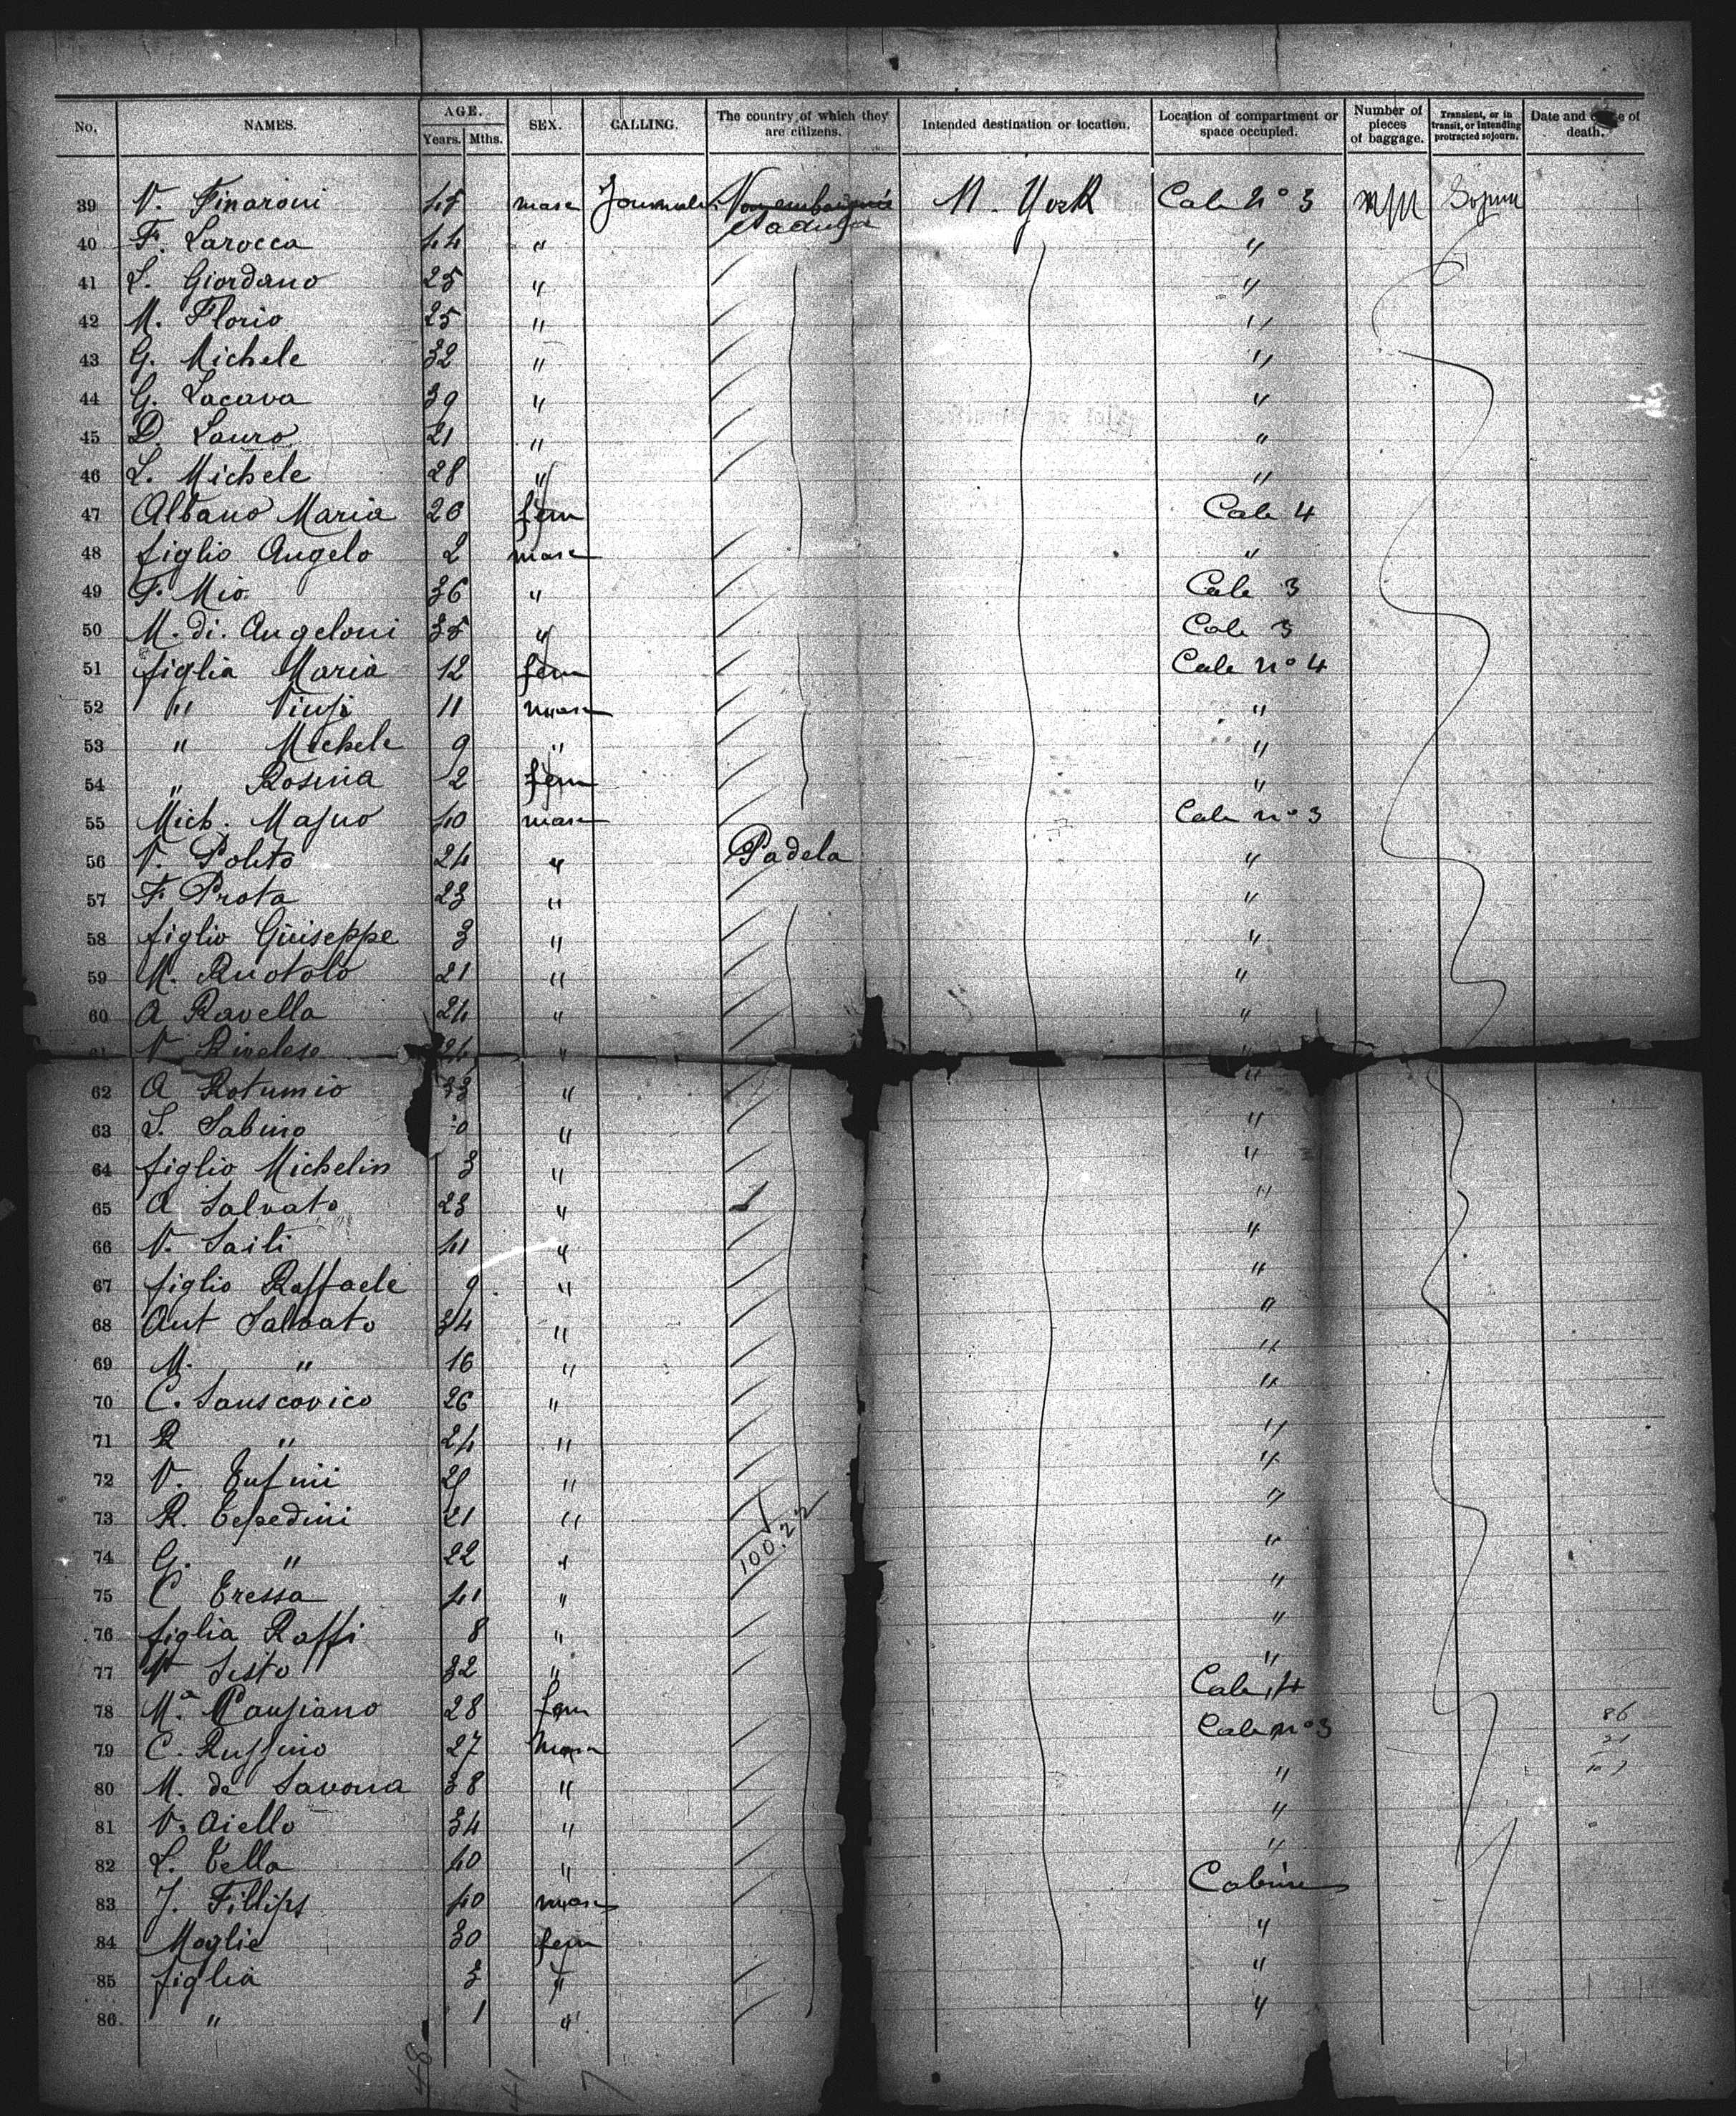 No. NAMES. AGE. Years. Mths. SEX. CALLING. The country of which they are citizens. Intended destination or location. Location of compartment or space occupied. Number of pieces of baggage. Transient, or in transit, or intending protracted sojourn. Date and e of death.
39 V. Finaroni 45 masc N. York Cale No 3
40 F. Larocca 44 " "
41 L. Giordano 25 " "
42 M. Florio 25 " "
43 G. Michele 32 " "
44 G. Lacava 39 " "
45 D. Lauro 21 " "
46 L. Michele 28 " "
47 Albano Maria 26 fem Cale 4
48 figlio Angelo 2 masc "
49 F. Mio 36 " Cale 3
50 M. di. Angeloni 35 " Cale 3
51 figlia Maria 12 fem Cale no 4
52 " 11 masc "
53 " Michele 9 " "
54 " Rosina 2 fem "
55 Mich. 40 masc Cale no 3
56 V. Polito 24 " Padela "
57 F. Prota 23 " "
58 figlio Giuseppe 3 " "
59 M. Ruotolo 21 " "
60 A Ravella 24 " "
V. "
62 A Rotumio 33 " "
63 L. Sabino 0 " "
64 figlio Michelin 3 " "
65 A Salvato 23 " "
66 V. Saili 41 " "
67 figlio Raffaele 9 " "
68 Ant Salvato 34 " "
69 M. " 16 " "
70 C. Sanscovico 26 " "
71 R " 24 " "
72 V. " "
73 R. Tepedini 21 " "
74 G. " 22 " 100.22 "
75 C Tressa 41 " "
76 figlia Raffi 8 " "
77 Sisto 32 " "
78 Ma 28 fem Cale 4
79 C. Ruffino 27 Masc Cale no 3
80 M. de Savona 38 " "
81 V. Aiello 34 " "
82 L. Tella 40 " "
83 J. Fillips 40 masc Cabine
84 Moglie 30 fem "
85 figlia 3 " "
86 " 1 " "
86
21
48 41 7